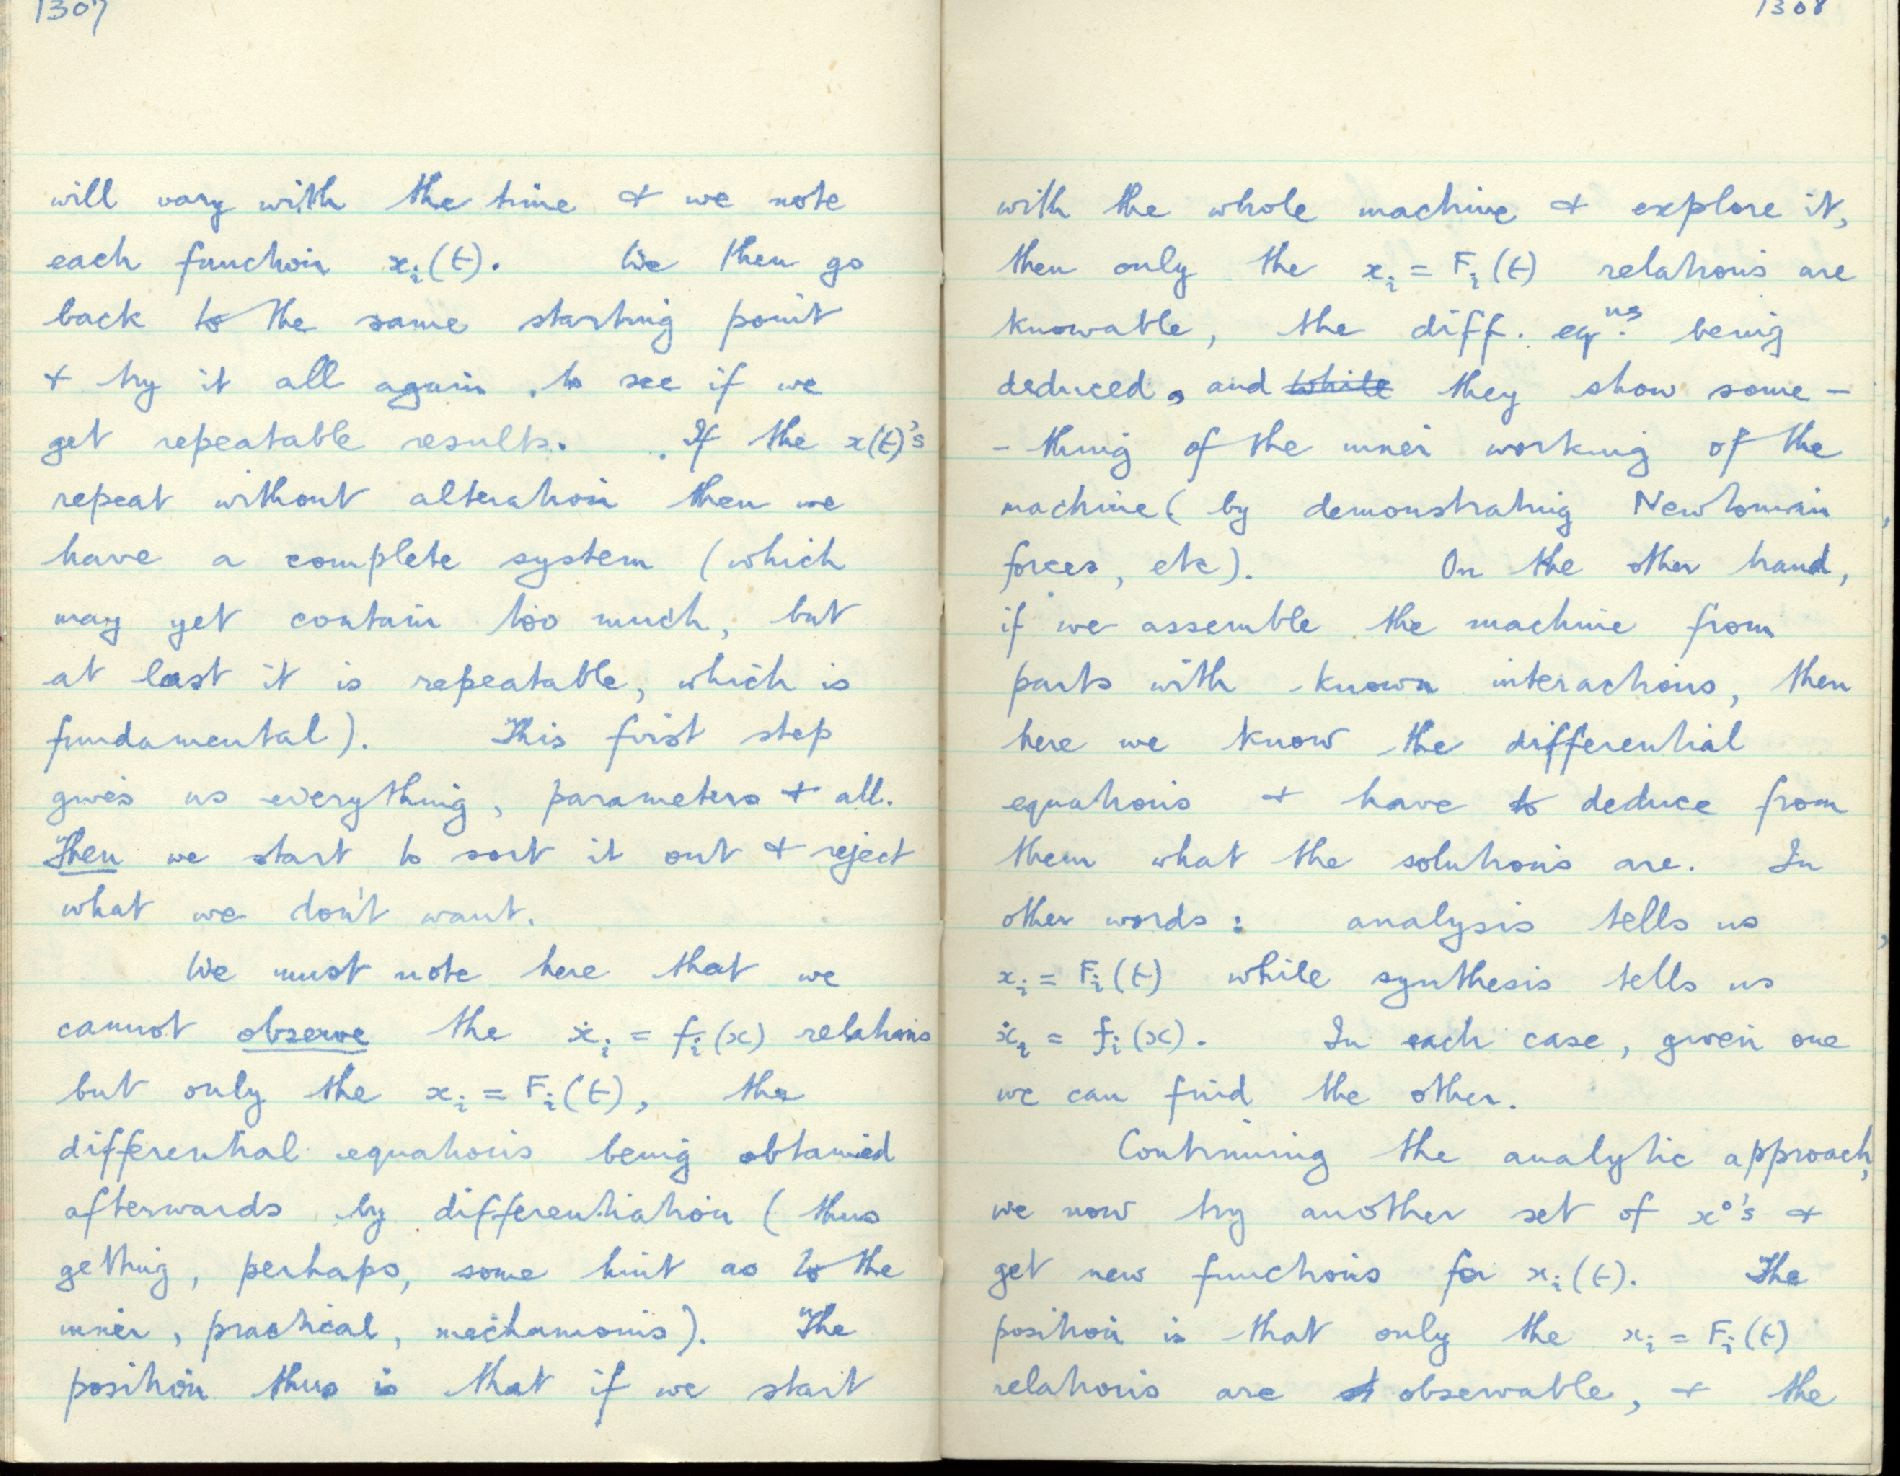 1307
will vary with the time & we note
each function xᵢ(t). We then go
back to the same starting point
& try it all again, to see if we
get repeatable results. If the x(t)'s
repeat without alteration then we
have a complete system (which
may yet contain too much, but
at last it is repeatable, which is
fundamental). This first step
gives us everything, parameters & all.
Then we start to sort it out & reject
what we don't want.
We must note here that we
cannot observe the ẋᵢ = fᵢ(x) relations
but only the xᵢ = Fᵢ(t), the
differential equations being obtained
afterwards by differentiation (thus
getting, perhaps, some hint as to the
inner, practical, mechanisms). The
position thus is that if we start
1308
with the whole machine & explore it,
then only the xᵢ = Fᵢ(t) relations are
knowable, the diff. eqⁿˢ. being
deduced, and while they show some-
-thing of the inner working of the
machine (by demonstrating Newtonian
forces, etc). On the other hand,
if we assemble the machine from
parts with known interactions, then
here we know the differential
equations & have to deduce from
them what the solutions are. In
other words: analysis tells us
xᵢ = Fᵢ(t) while synthesis tells us
ẋᵢ = fᵢ(x). In each case, given one
we can find the other.
Continuing the analytic approach,
we now try another set of x⁰'s &
get new functions for xᵢ(t). The
position is that only the xᵢ = Fᵢ(t)
relations are observable, & the